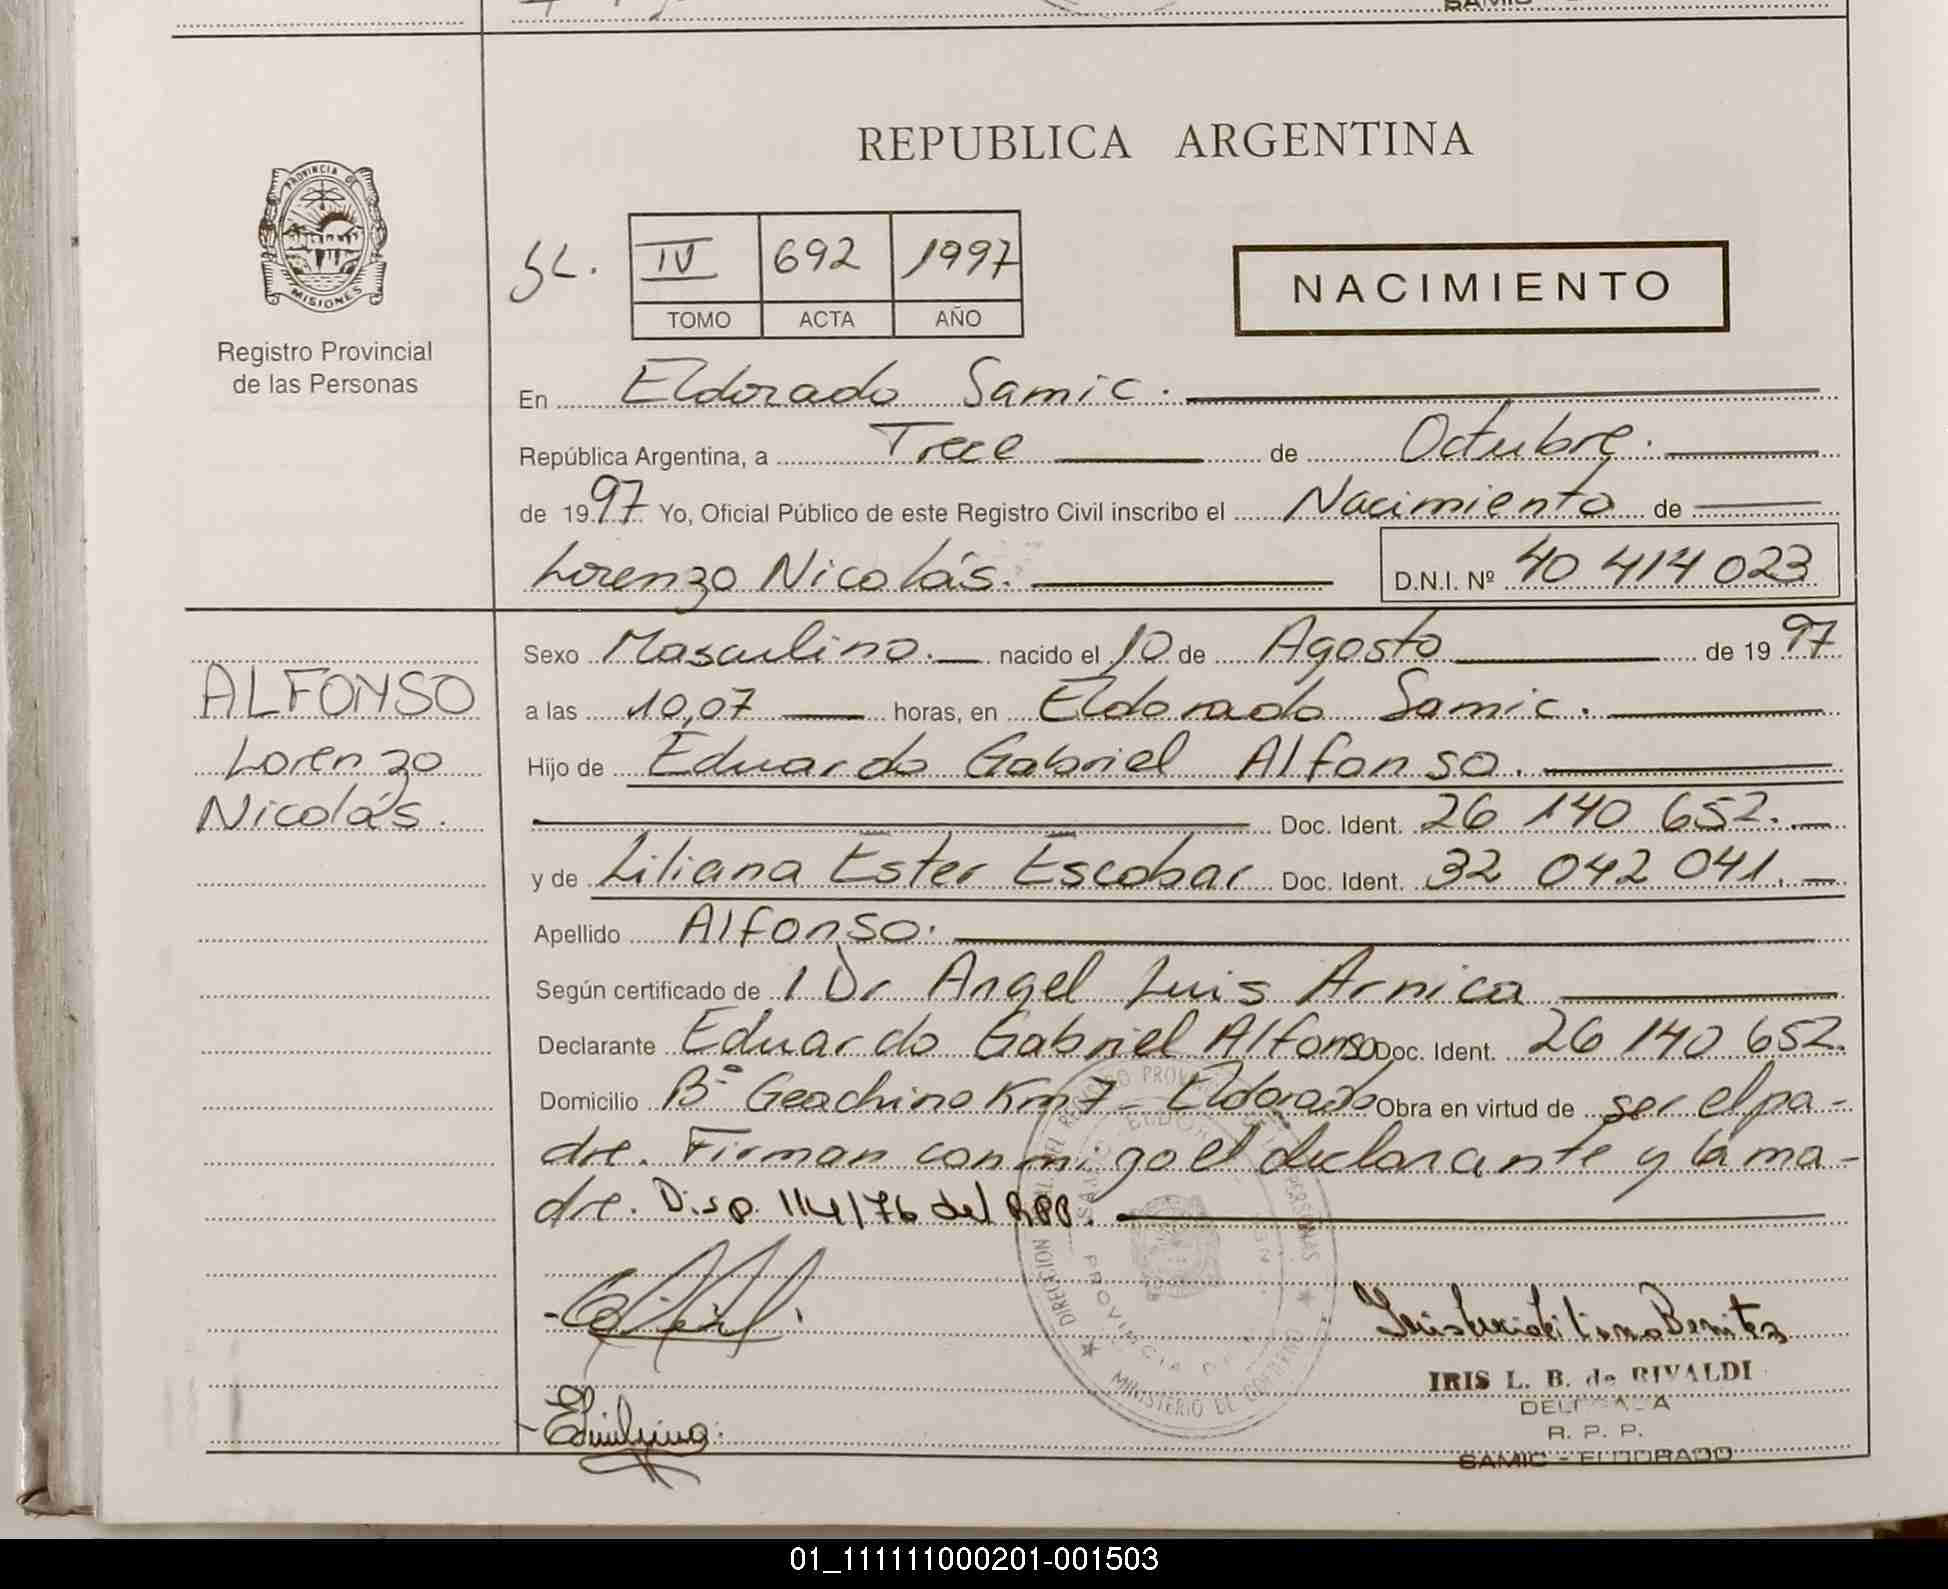 REPUBLICA ARGENTINA
PROVINCIA DE
MISIONES
Registro Provincial
de las Personas
IV 692 1997
TOMO ACTA AÑO
NACIMIENTO
En Eldorado Samic.
República Argentina, a Trece de Octubre.
de 1997 Yo, Oficial Público de este Registro Civil inscribo el Nacimiento de
Lorenzo Nicolás. D.N.I. Nº 40 414 023
ALFONSO
Lorenzo
Nicolás.
Sexo Masculino. nacido el 10 de Agosto de 1997
a las 10,07 horas, en Eldorado Samic.
Hijo de Eduardo Gabriel Alfonso.
Doc. Ident. 26 140 652.
y de Liliana Ester Escobar Doc. Ident. 32 042 041.
Apellido Alfonso.
Según certificado de l Dr Angel Luis Arnica
Declarante Eduardo Gabriel Alfonso Doc. Ident. 26 140 652.
Domicilio Bº Geachino Km 7 - Eldorado Obra en virtud de ser el pa-
dre. Firman conmigo el declarante y la ma-
dre. Disp. 114/76 del RPP.
MINISTERIO DE GOBIERNO
IRIS L. B. de RIVALDI
DELEGADA
R. P. P.
SAMIC - ELDORADO
01_111111000201-001503